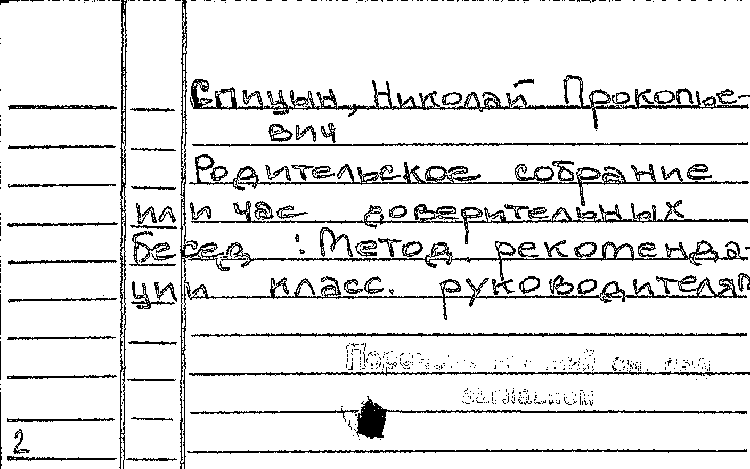 Спицын, Николай Прокопье-
вич
Родительское собрание
или час доверительных
бесед : Метод. рекоменда-
ции класс. руководителям
см. под
заглавием
2